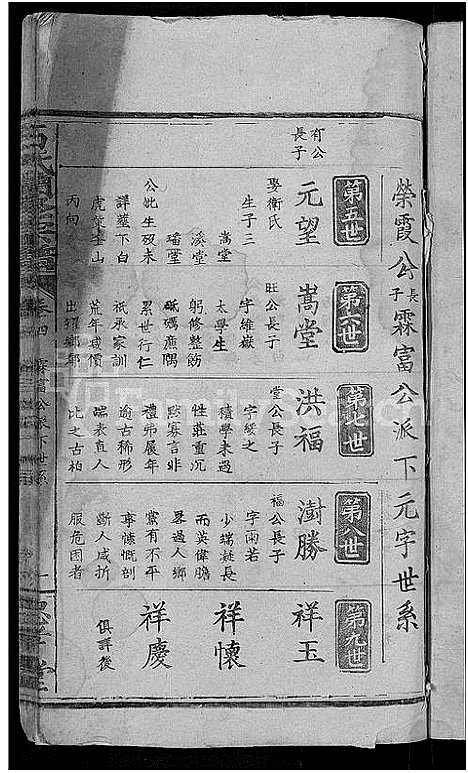 榮霞公長子霖富公派下元字世系
第五世
有公長子
元望
娶衛氏
生子三
嵩堂
溪堂
璠堂
公妣生歿未
詳墓下白
虎堂奎山
丙向
第六世
旺公長子
嵩堂
字維嶽
太學生
躬修整飭
砥礪廉隅
累世行仁
祇承家訓
荒年減價
出糶鄉鄰
第七世
堂公長子
洪福
字綏之
積學未遇
性莊重沉
默寡言非
禮弗履年
逾古稀形
端表直人
比之古柏
第八世
福公長子
澍勝
字雨若
少端凝長
而英偉膽
畧過人鄉
黨有不平
事慷慨剖
斷人咸折
服危困者
第九世
祥玉
祥懷
祥慶
俱詳後
卷四
霖富公派下世系
一